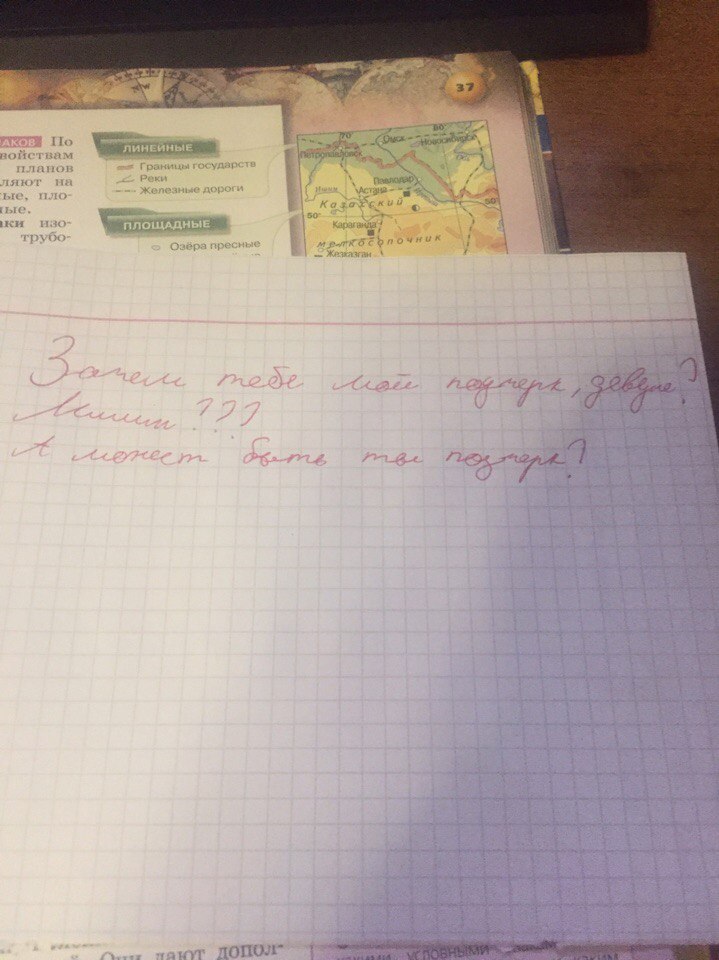 37
ЗНАКОВ По
войствам
планов
ляют на
ные, пло-
ные.
аки изо-
трубо-
ЛИНЕЙНЫЕ
Границы государств
Реки
Железные дороги
ПЛОЩАДНЫЕ
Озёра пресные
70°
80°
Омск
Новосибирск
Петропавловск
Павлодар
Астана
Казахский
50°
50°
Караганда
мелкосопочник
Жезказган
Зачем тебе мой подчерк,
Ммммм???
А может быть ты подчерк?
Они дают допол-
условными